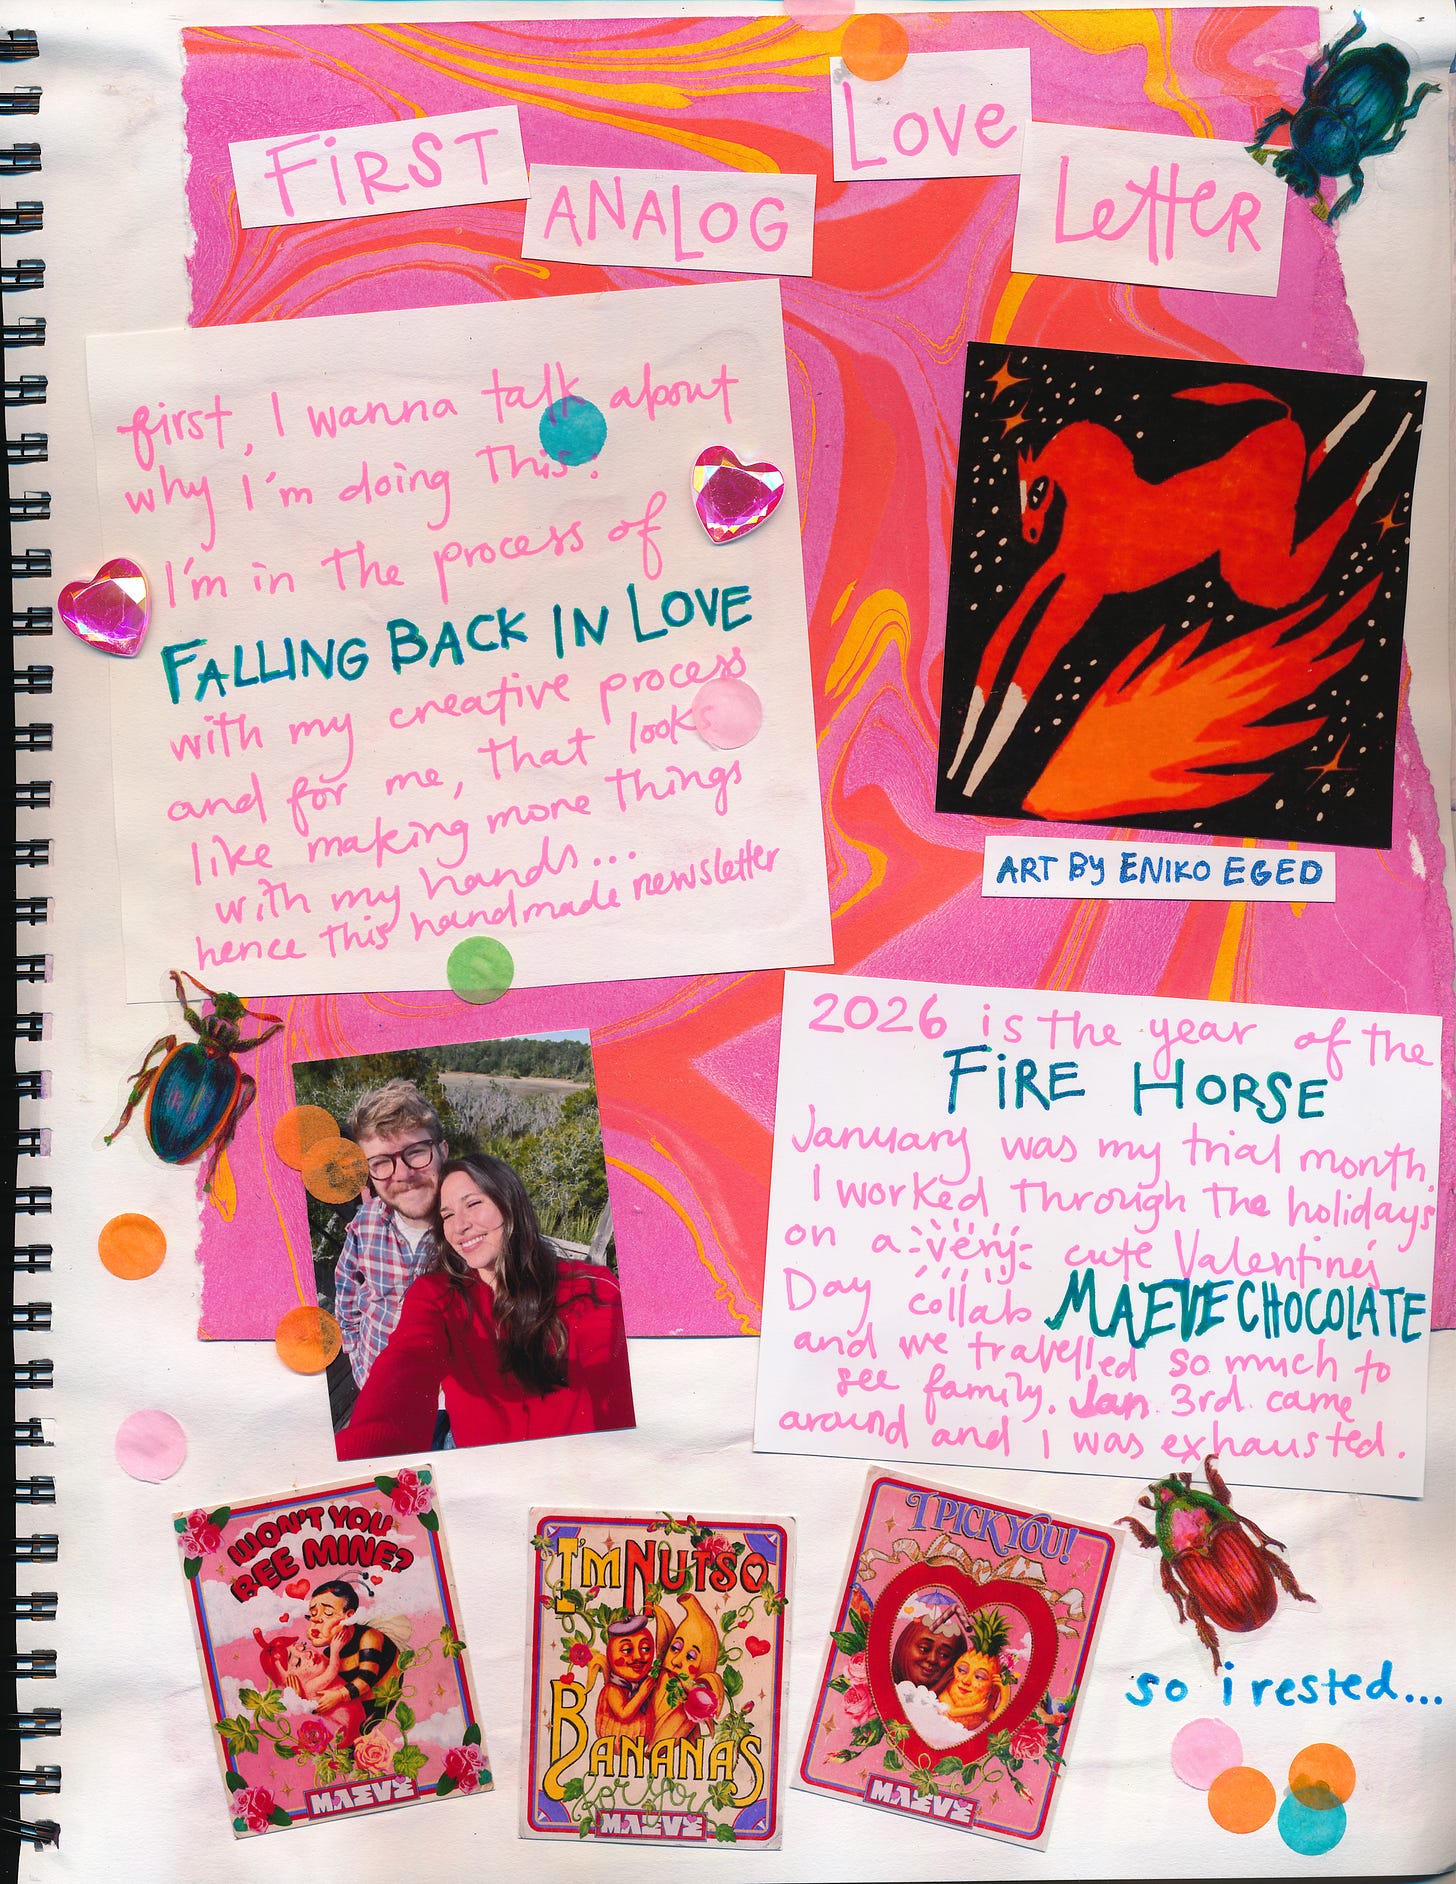 FiRST
ANALOG
Love
LeTTER
first, I wanna talk about
why I'm doing this:
I'm in the process of
FALLING BACK IN LOVE
with my creative process
and for me, that looks
like making more things
with my hands...
hence this handmade newsletter
ART BY ENIKO EGED
2026 is the year of the
FIRE HORSE
January was my trial month.
I worked through the holidays
on a very cute Valentine's
Day collab MAEVE CHOCOLATE
and we travelled so much to
see family. Jan 3rd came
around and i was exhausted.
WON'T YOU
BEE MINE?
MAEVE
I'M NUTSO
BANANAS
for you
MAEVE
I PICK YOU!
MAEVE
so i rested...